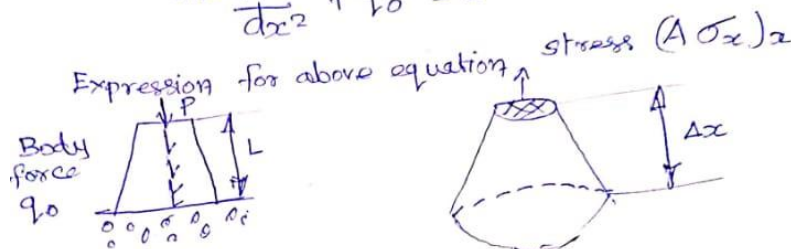 dx² + q0
Expression for above equation, stress (A σx)x
P
Body force q0
L
Δx